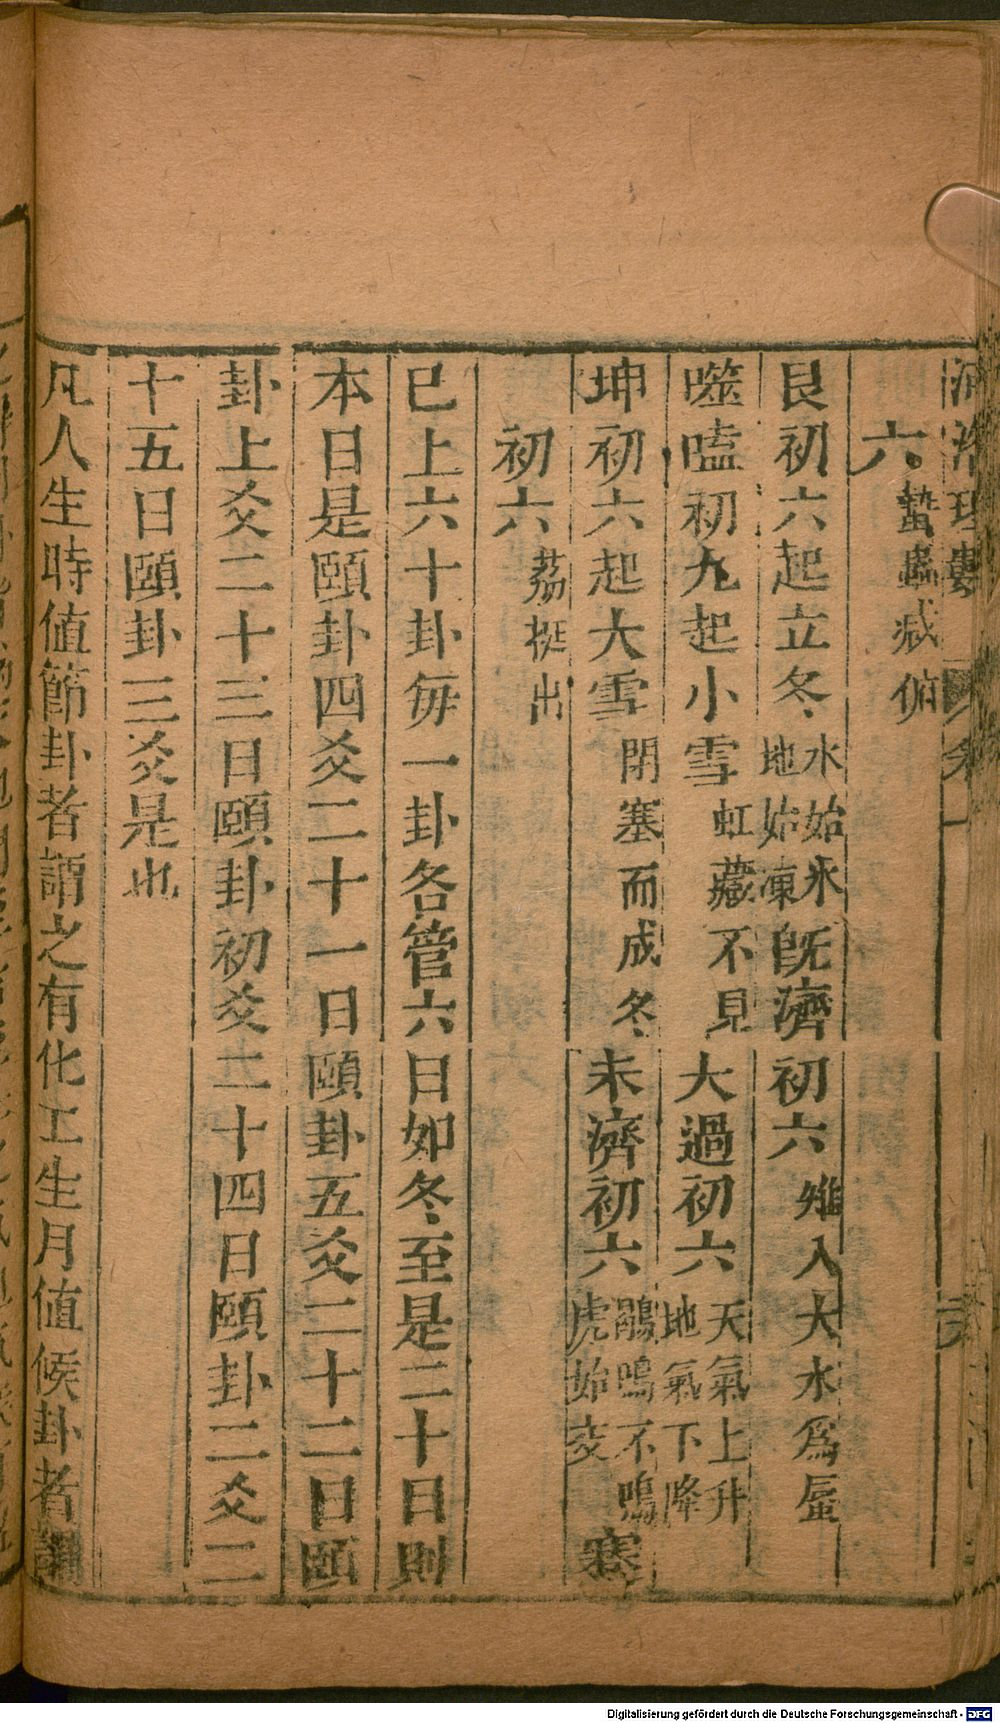 河洛理數 卷十 六
六 蟄蟲咸俯
艮初六起立冬 水始氷 地始凍 旣濟初六 雉入大水爲蜃
噬嗑初九起小雪 虹藏不見 大過初六 天氣上升 地氣下降
坤初六起大雪 閉塞而成冬 未濟初六 鶡鳴不鳴 虎始交 蹇
初六 荔挺出
已上六十卦每一卦各管六日如冬至是二十日則
本日是頤卦四爻二十一日頤卦五爻二十二日頤
卦上爻二十三日頤卦初爻二十四日頤卦二爻二
十五日頤卦三爻是也
凡人生時值節卦者謂之有化工生月值候卦者謂
Digitalisierung gefördert durch die Deutsche Forschungsgemeinschaft - DFG